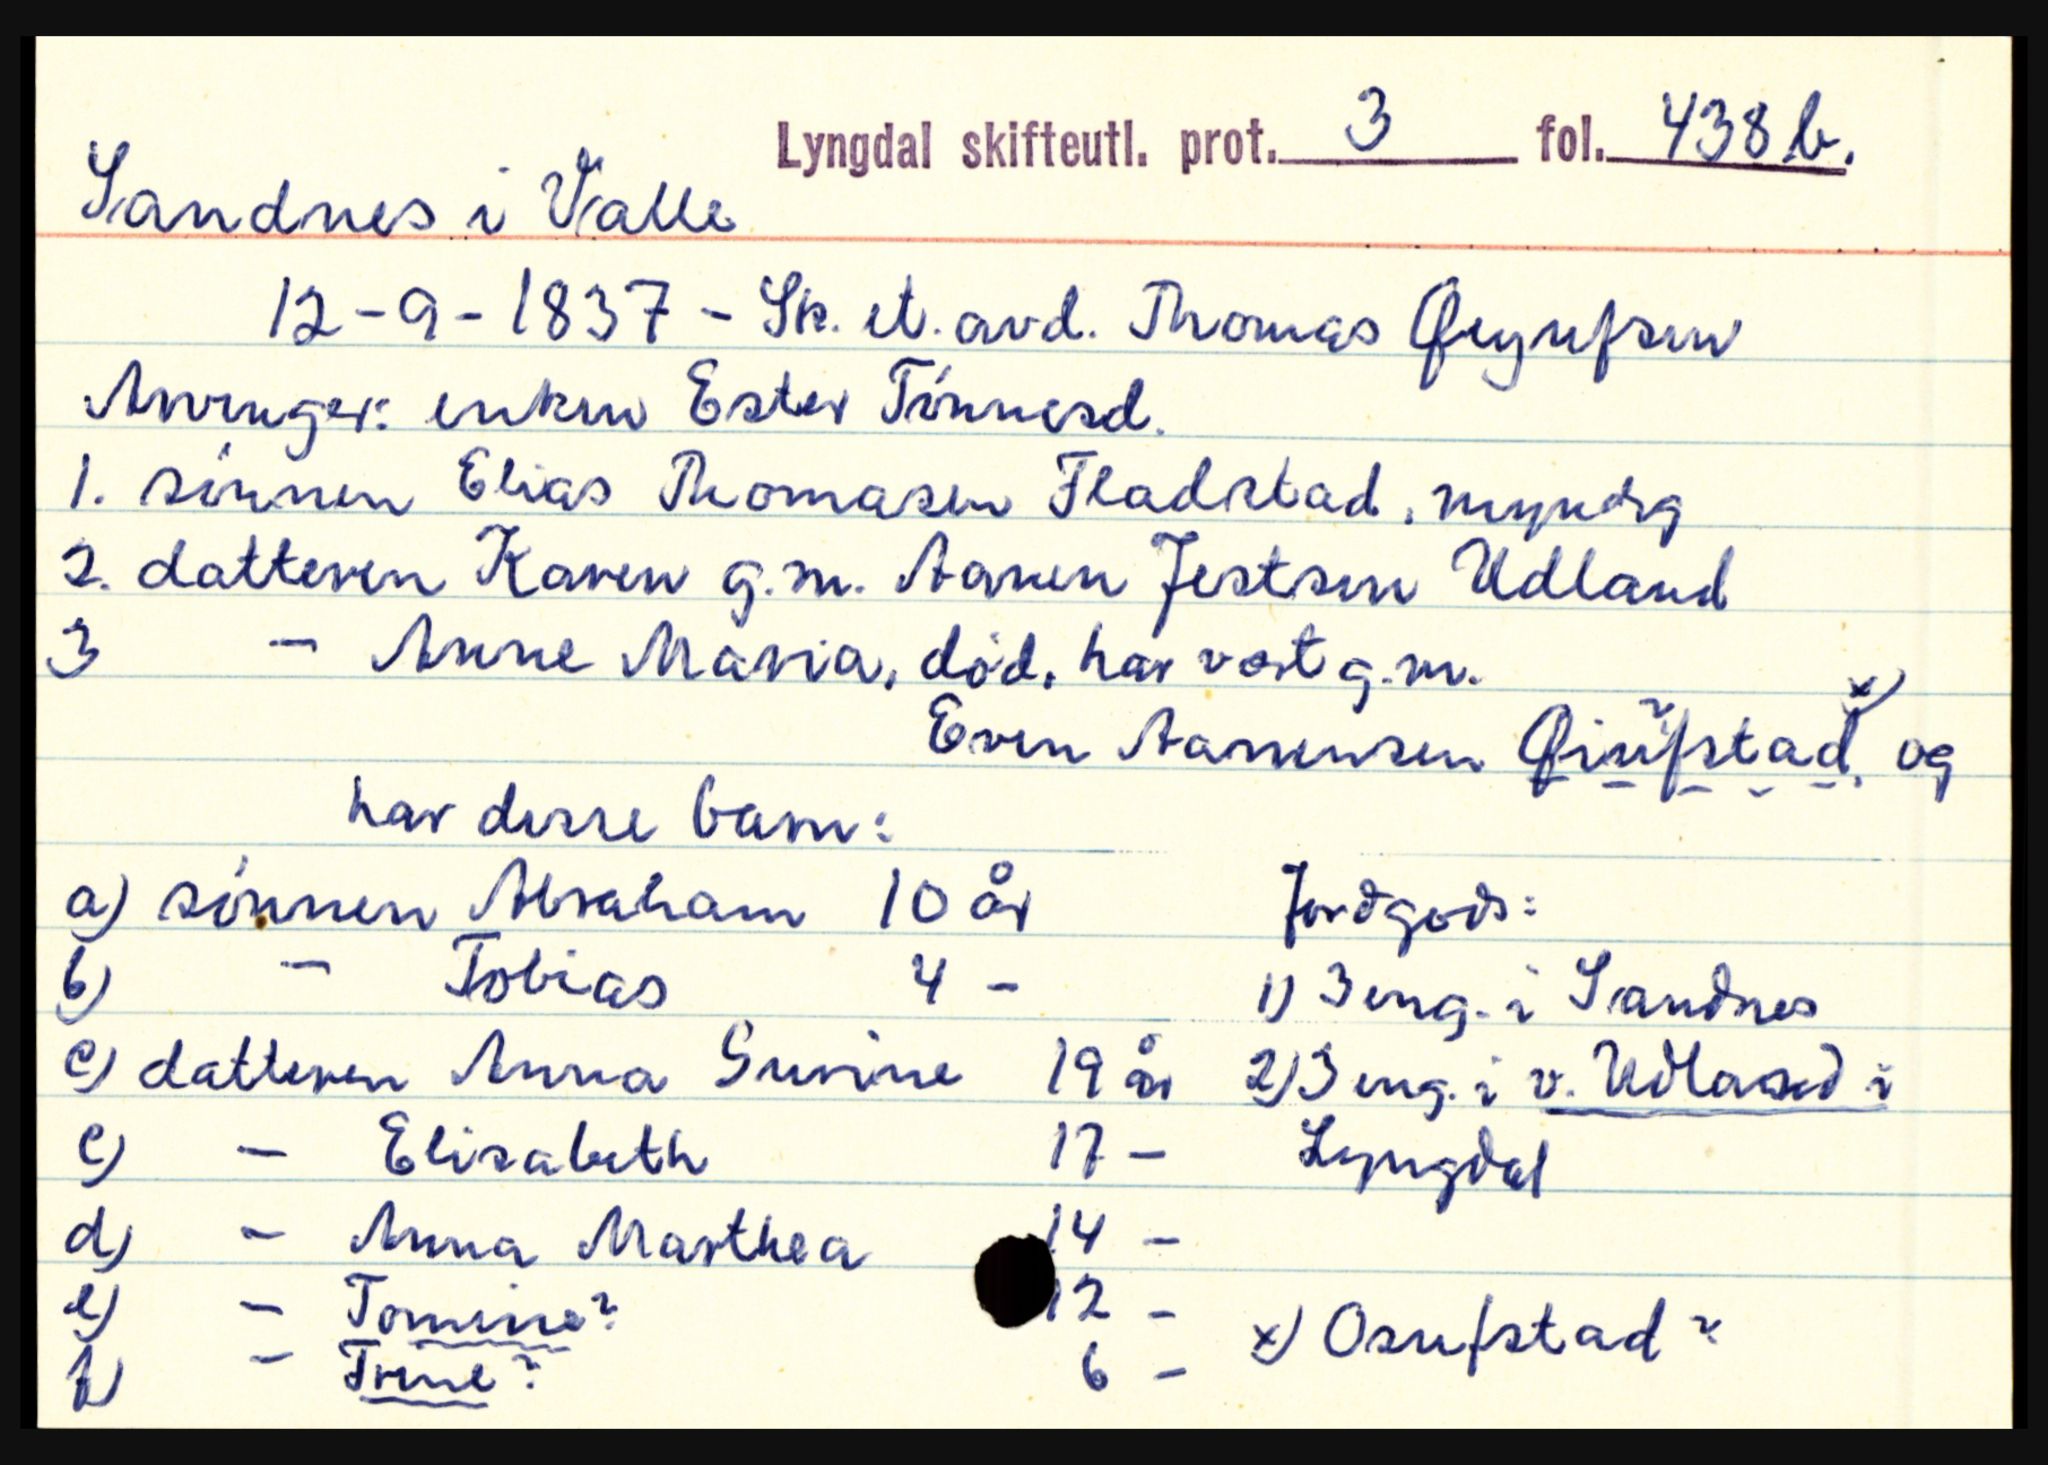 Lyngdal skifteutl. prot. 3 fol. 438 b.
Sandnes i Valle
12-9-1837 - Sk. et. avd. Thomas Øyufsen
Arvinger: enken Ester Tønnesd.
1. sønnen Elias Thomasen Fladstad, myndig
2. datteren Karen g.m. Aanen Jestsen Udland
3 - Anne Maria, død, har vært g.m.
Even Aanensen Øiufstad, x) og
har disse barn:
a) sønnen Abraham 10 år
b) - Tobias 4 -
c) datteren Anna Surine 19 år
c) - Elisabeth 17 -
d) - Anna Marthea 14 -
e) - Tomine? 12 -
f) - Trine? 6 -
Jordgods:
1) 3 eng. i Sandnes
2) 3 eng. i v. Udland i
Lyngdal
x) Osufstad?